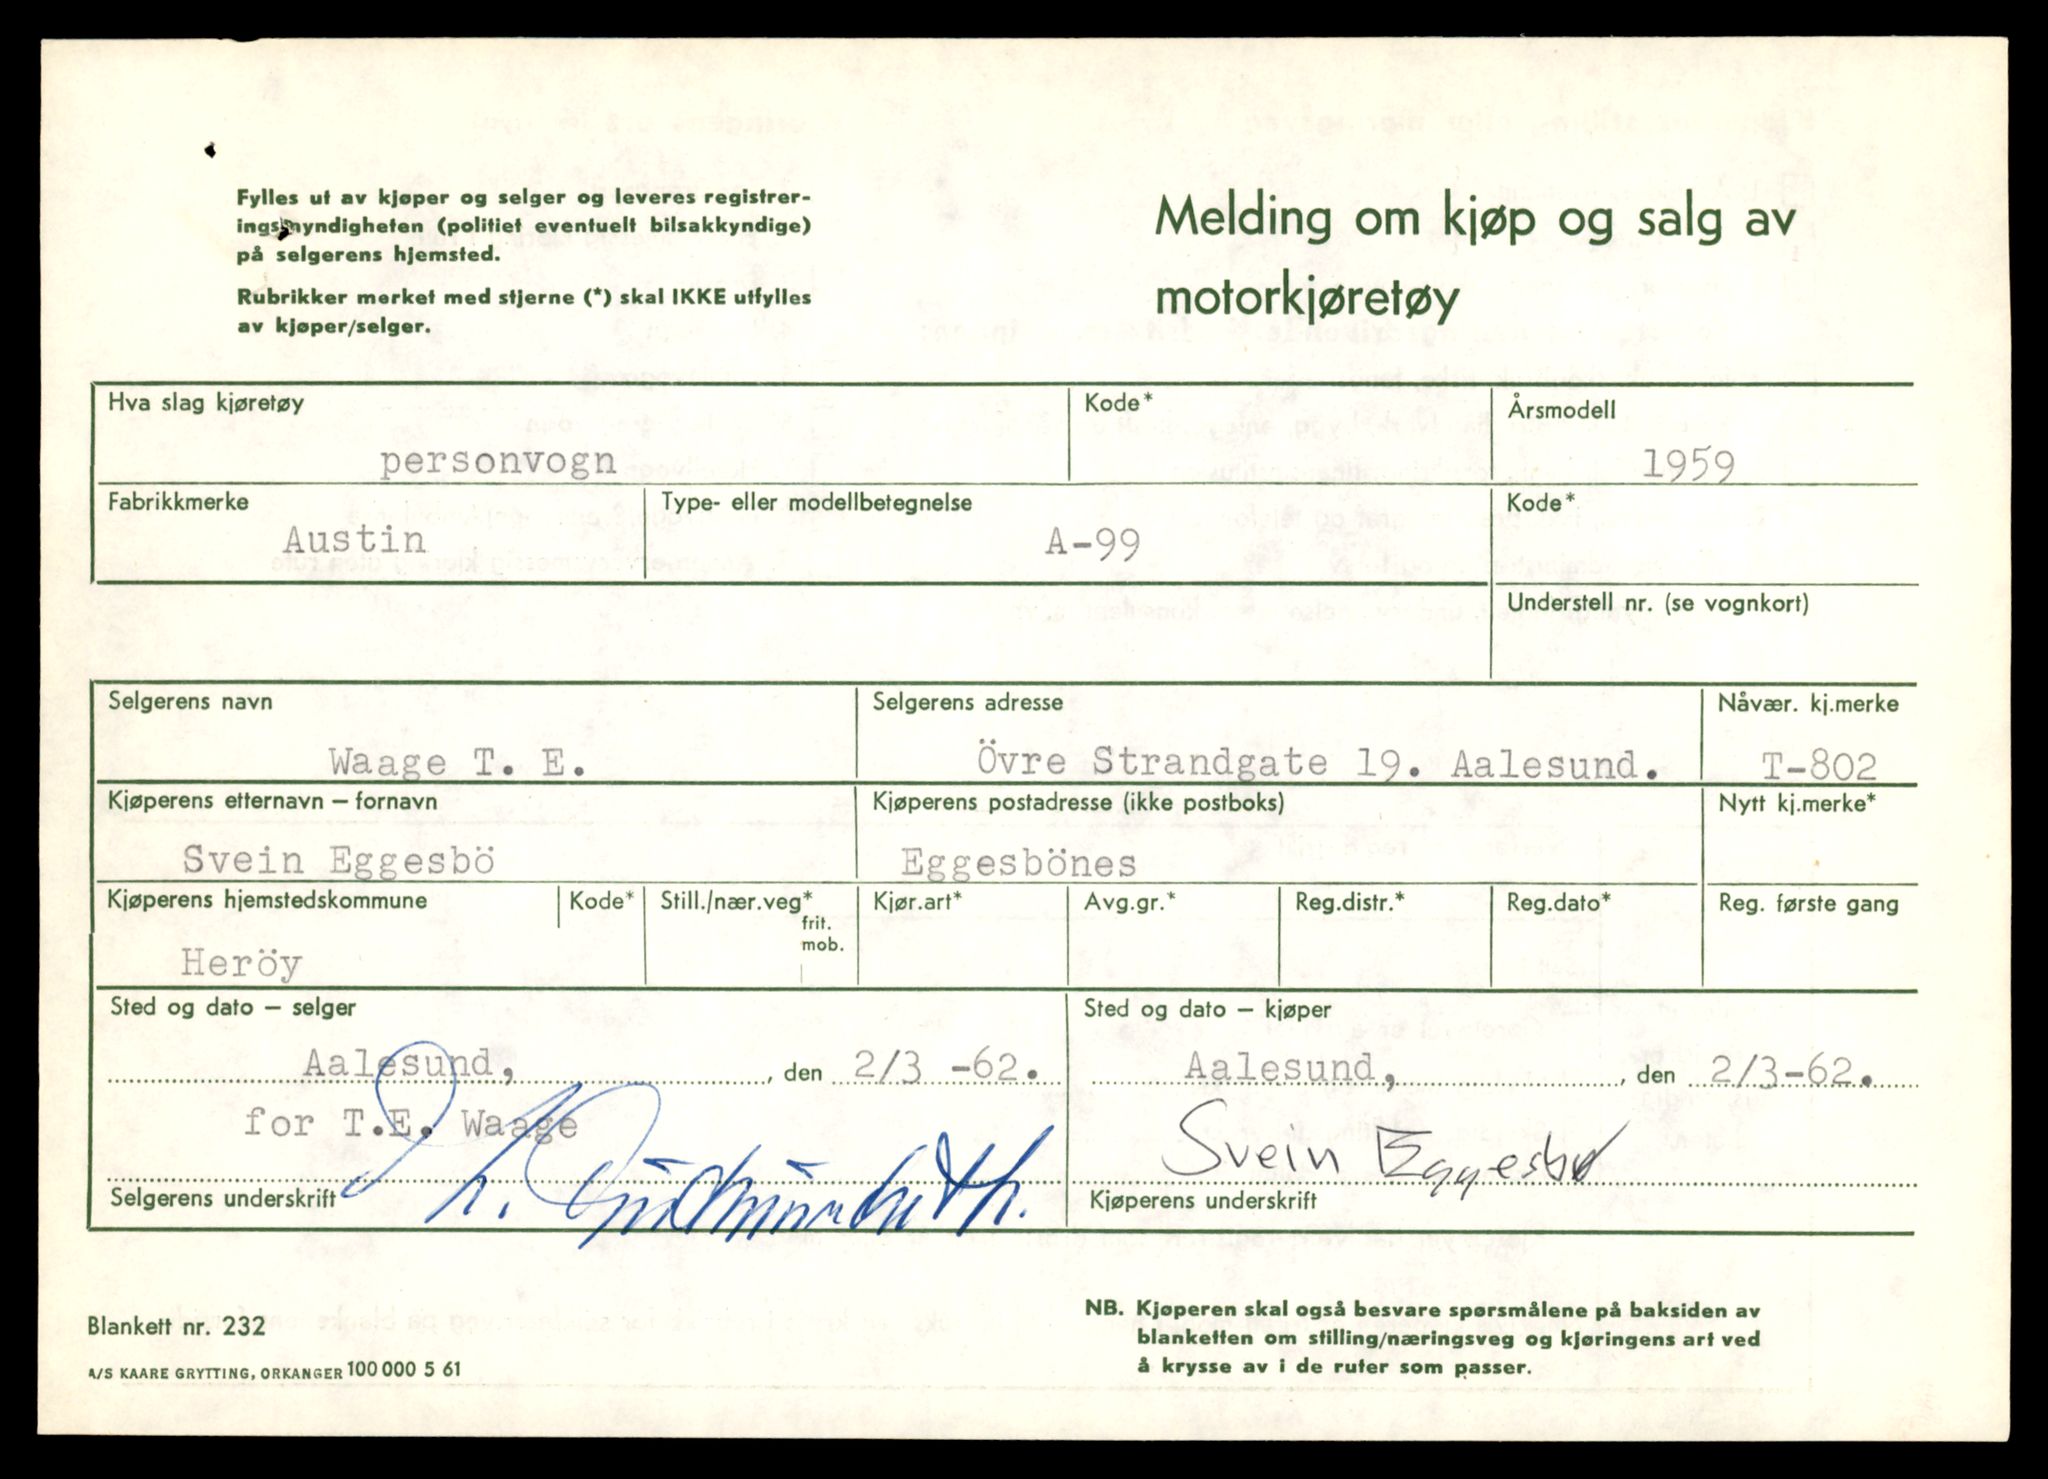 Fylles ut av kjøper og selger og leveres registrer-
ingsmyndigheten (politiet eventuelt bilsakkyndige)
på selgerens hjemsted.
Rubrikker merket med stjerne (*) skal IKKE utfylles
av kjøper/selger.
Melding om kjøp og salg av
motorkjøretøy
Hva slag kjøretøy Kode* Årsmodell
personvogn 1959
Fabrikkmerke Type- eller modellbetegnelse Kode*
Austin A-99
Understell nr. (se vognkort)
Selgerens navn Selgerens adresse Nåvær. kj.merke
Waage T. E. Övre Strandgate 19. Aalesund. T-802
Kjøperens etternavn – fornavn Kjøperens postadresse (ikke postboks) Nytt kj.merke*
Svein Eggesbö Eggesbönes
Kjøperens hjemstedskommune Kode* Still./nær.veg* Kjør.art* Avg.gr.* Reg.distr.* Reg.dato* Reg. første gang
frit.
mob.
Heröy
Sted og dato – selger Sted og dato – kjøper
Aalesund, , den 2/3 -62. Aalesund, , den 2/3-62.
for T.E. Waage
Svein Eggesbø
Selgerens underskrift Kjøperens underskrift
Blankett nr. 232
A/S KAARE GRYTTING, ORKANGER 100 000 5 61
NB. Kjøperen skal også besvare spørsmålene på baksiden av
blanketten om stilling/næringsveg og kjøringens art ved
å krysse av i de ruter som passer.